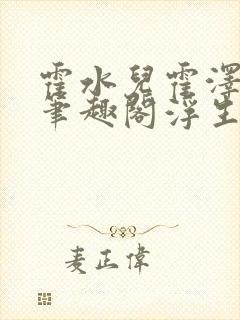 霍水兒霍澤
筆趣閣浮生
麦正偉